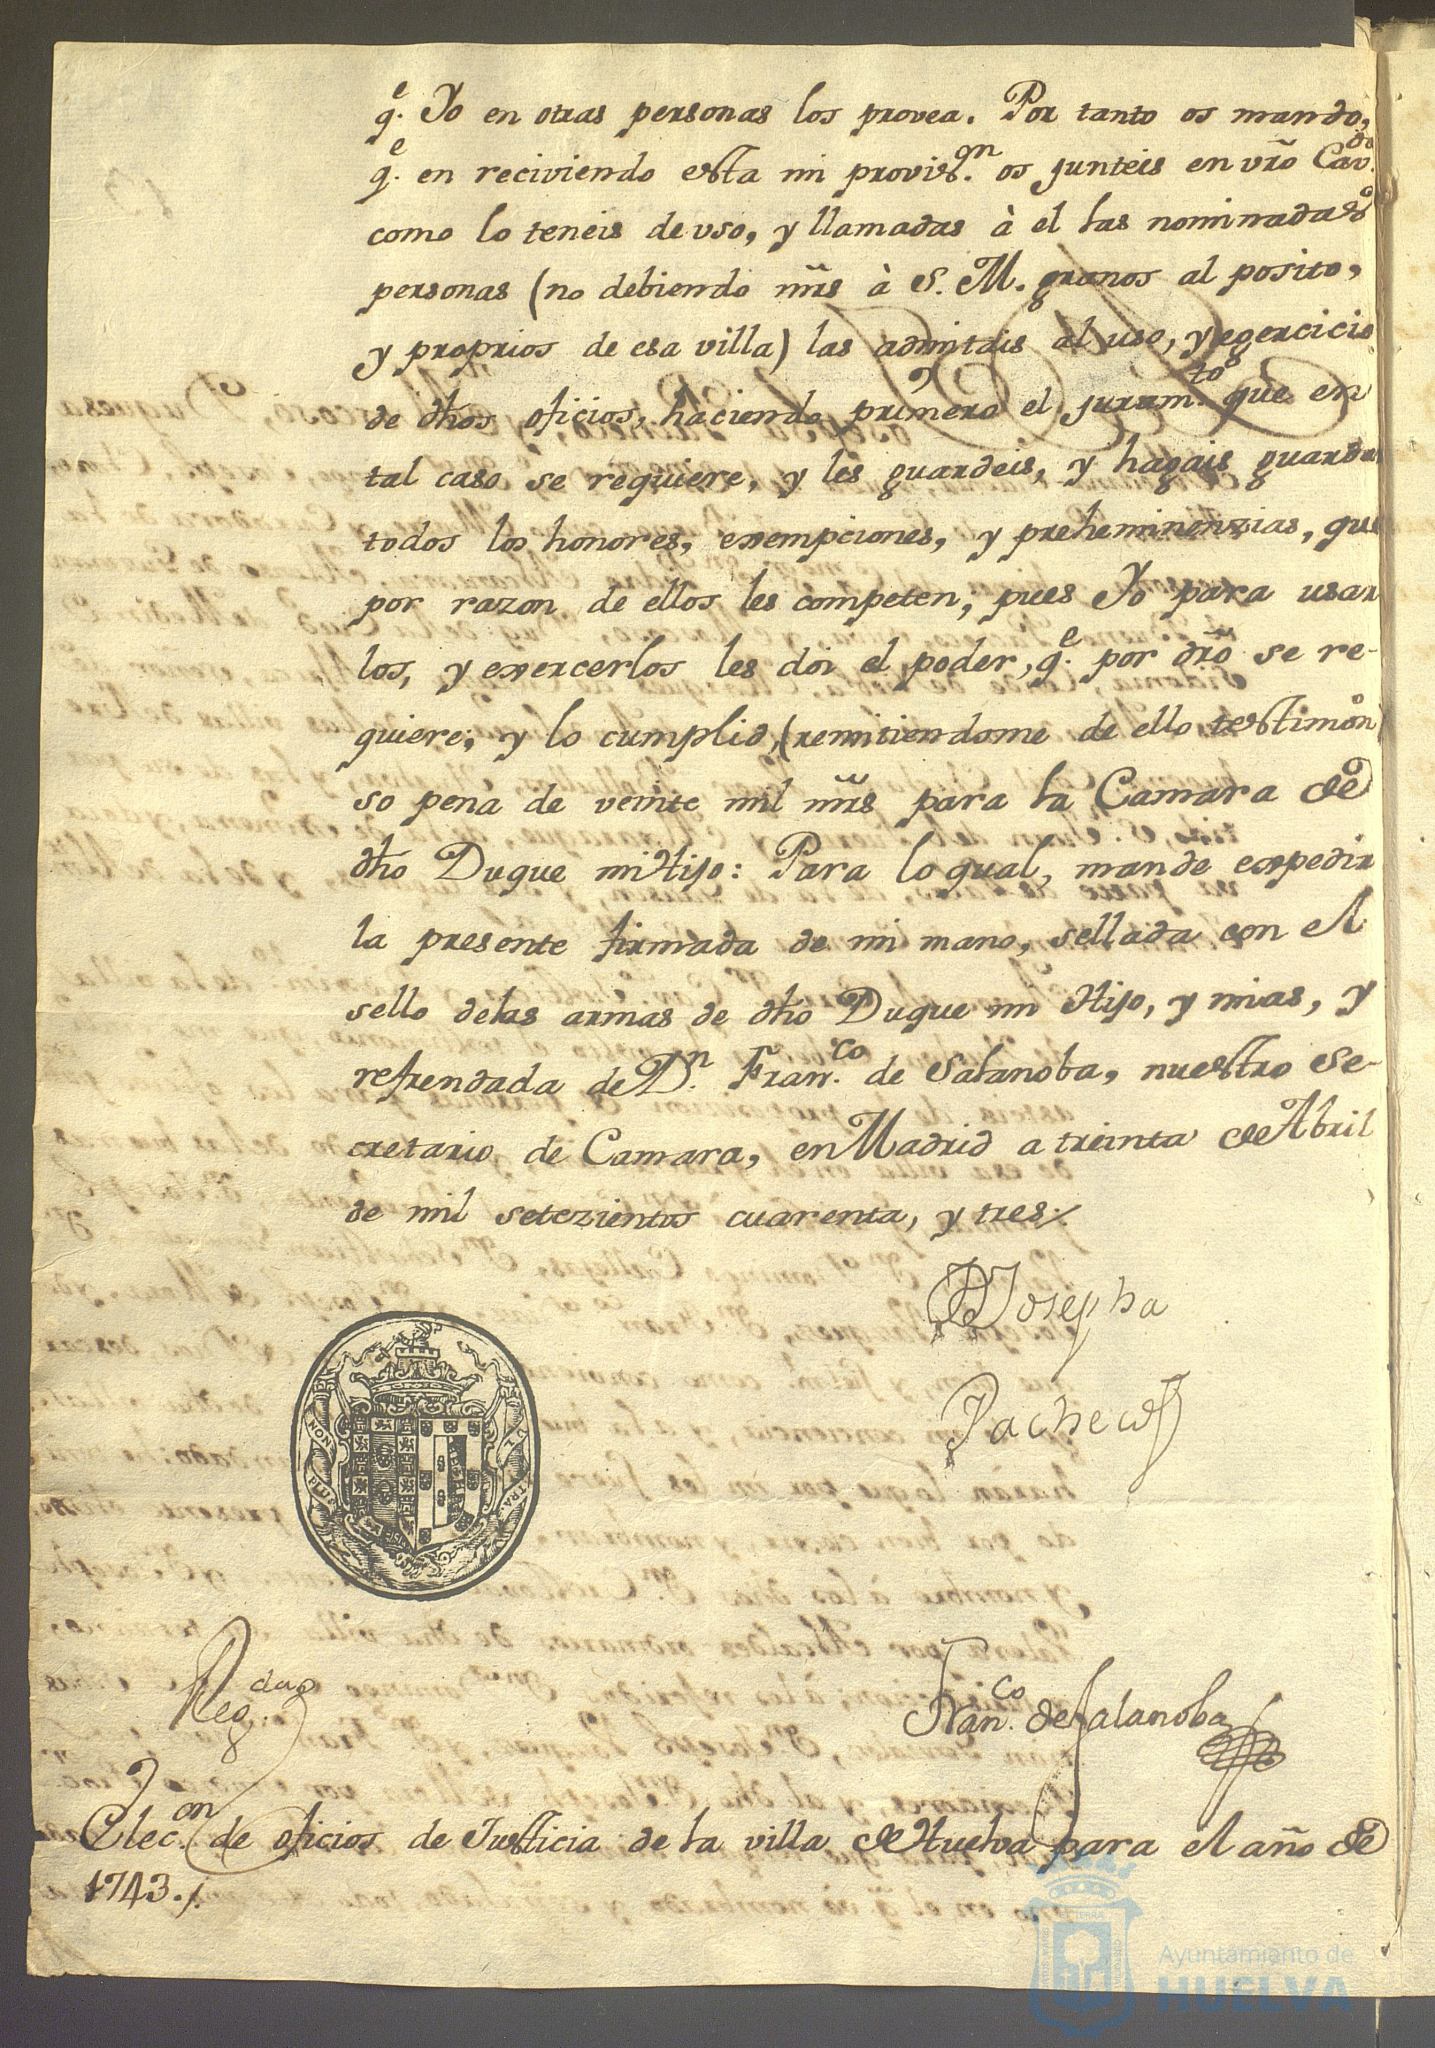 q.e Yo en otras personas los provea. Por tanto os mando,
q.e en reciviendo esta mi provis.on os junteis en vro Cav.do
como lo teneis de uso, y llamadas à el las nominadas
personas (no debiendo mrs à S. M. granos al posito,
y proprios de esa villa) las admitais al uso, y egercicio
de dhos oficios, haciendo primero el juram.to que en
tal caso se requiere, y les guardeis, y hagais guardar
todos los honores, exempciones, y preheminenzias, que
por razon de ellos les competen; pues Yo para usar
los, y exercerlos les doi el poder, q.e por dro se re-
quiere; y lo cumplid, (remitiendome de ello testimon.o)
so pena de veinte mil mrs para la Camara de
dho Duque mi Hijo: Para lo qual, mande expedir
la presente firmada de mi mano, sellada con el
sello de las armas de dho Duque mi Hijo, y mias, y
refrendada de D.n Fran.co de Salanoba, nuestro Se-
cretario de Camara, en Madrid a treinta de Abril
de mil setezientos cuarenta, y tres./.
Josepha
Pacheco
NON PLUS ULTRA
Reg.da
Fran.co de Salanoba
Elec.on de oficios de Justicia de la villa de Huelva para el año de
1743./.
Ayuntamiento de
HUELVA